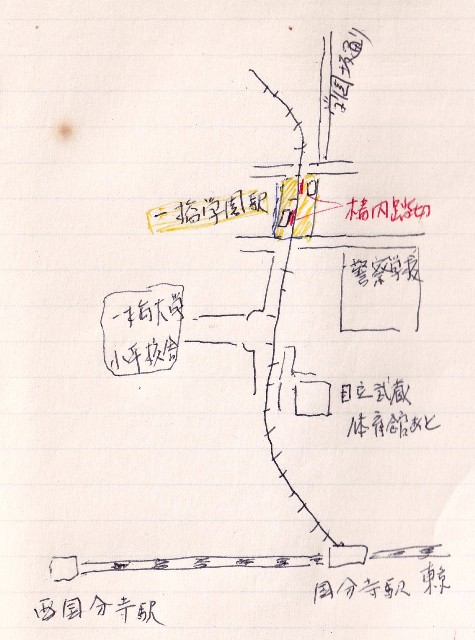 一橋学園駅
構内踏切
警察学校
一橋大学
小平校舎
日立武蔵
体育館あと
国分寺駅
東京
西国分寺駅